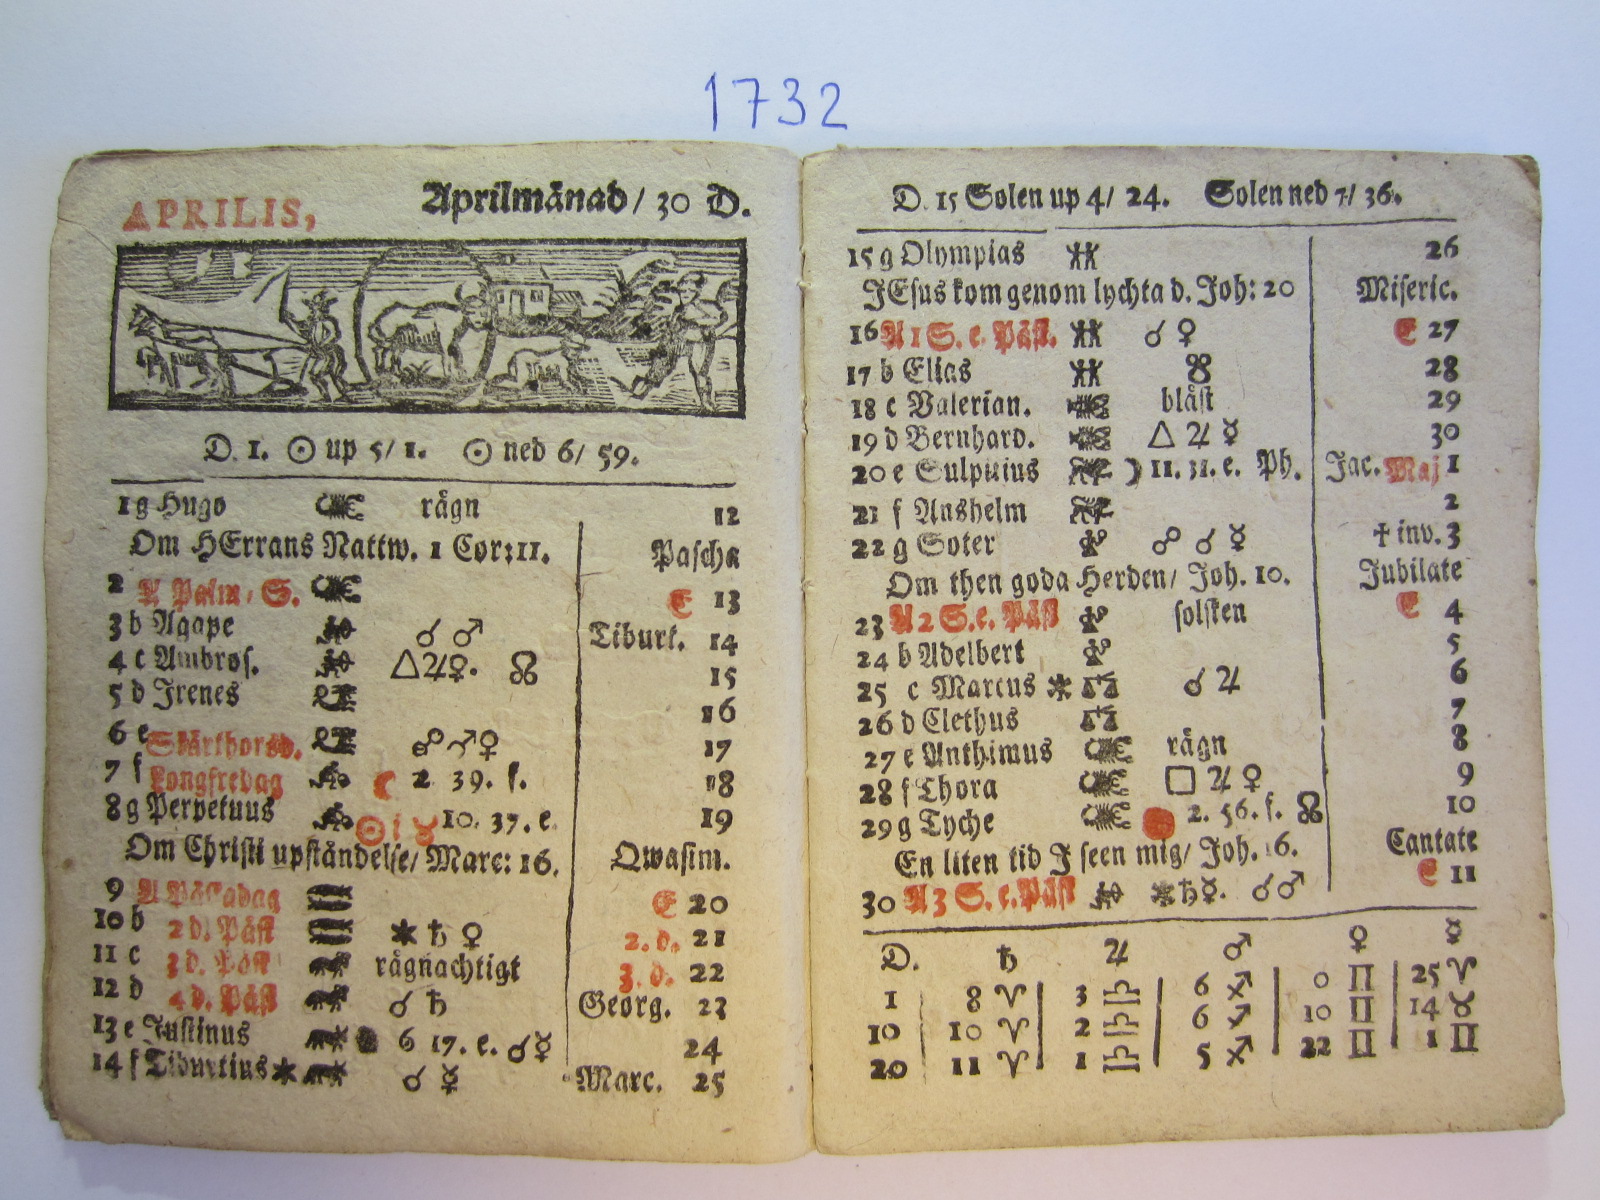 1732
APRILIS, Aprilmånad / 30 D.
D. 1. ☉ up 5/ 1. ☉ ned 6/ 59.
1 g Hugo rägn 12
Om HErrans Nattw. 1 Cor: 11. Pascha
2 A Palm, S. E 13
3 b Agape ☌ ♂ Tiburt. 14
4 c Ambros. △ ♃ ♀. ☊ 15
5 d Irenes 16
6 e Skärthorsd. ☍ ♂ ♀ 17
7 f Longfredag ☾ 2 39. f. 18
8 g Perpetuus ☉ i ♉ 10. 37. e. 19
Om Christi upståndelse/ Marc: 16. Qwasim.
9 A Påskadag E 20
10 b 2 d. Påsk ✱ ♄ ♀ 2. d. 21
11 c 3 d. Påsk rägnachtigt 3. d. 22
12 d 4 d. Påsk ☌ ♄ Georg. 23
13 e Justinus ● 6 17. e. ☌ ☿ 24
14 f Tiburtius ✱ ☌ ☿ Marc. 25
D. 15 Solen up 4/ 24. Solen ned 7/ 36.
15 g Olympias 26
JEsus kom genom lychta d. Joh: 20 Miseric.
16 A 1 S. e. Påsk. ☌ ♀ E 27
17 b Elias ☋ 28
18 c Valerian. blåst 29
19 d Bernhard. △ ♃ ☿ 30
20 e Sulpitius ☽ 11. 31. e. Ph. Jac. Maj 1
21 f Anshelm 2
22 g Soter ☍ ☌ ☿ † inv. 3
Om then goda Herden/ Joh. 10. Jubilate
23 A 2 S. e. Påsk solsken E 4
24 b Adelbert 5
25 c Marcus ✱ ♎ ☌ ♃ 6
26 d Clethus ♎ 7
27 e Anthimus rägn 8
28 f Thora □ ♃ ♀ 9
29 g Tyche ● 2. 56. f. ☊ 10
En liten tid J seen mig/ Joh. 16. Cantate
30 A 3 S. e. Påsk ✱ ♄ ☿. ☌ ♂ E 11
D. ♄ ♃ ♂ ♀ ☿
1 8 ♈ 3 ♎ 6 ♐ 0 ♊ 25 ♈
10 10 ♈ 2 ♎ 6 ♐ 10 ♊ 14 ♉
20 11 ♈ 1 ♎ 5 ♐ 22 ♊ 1 ♊